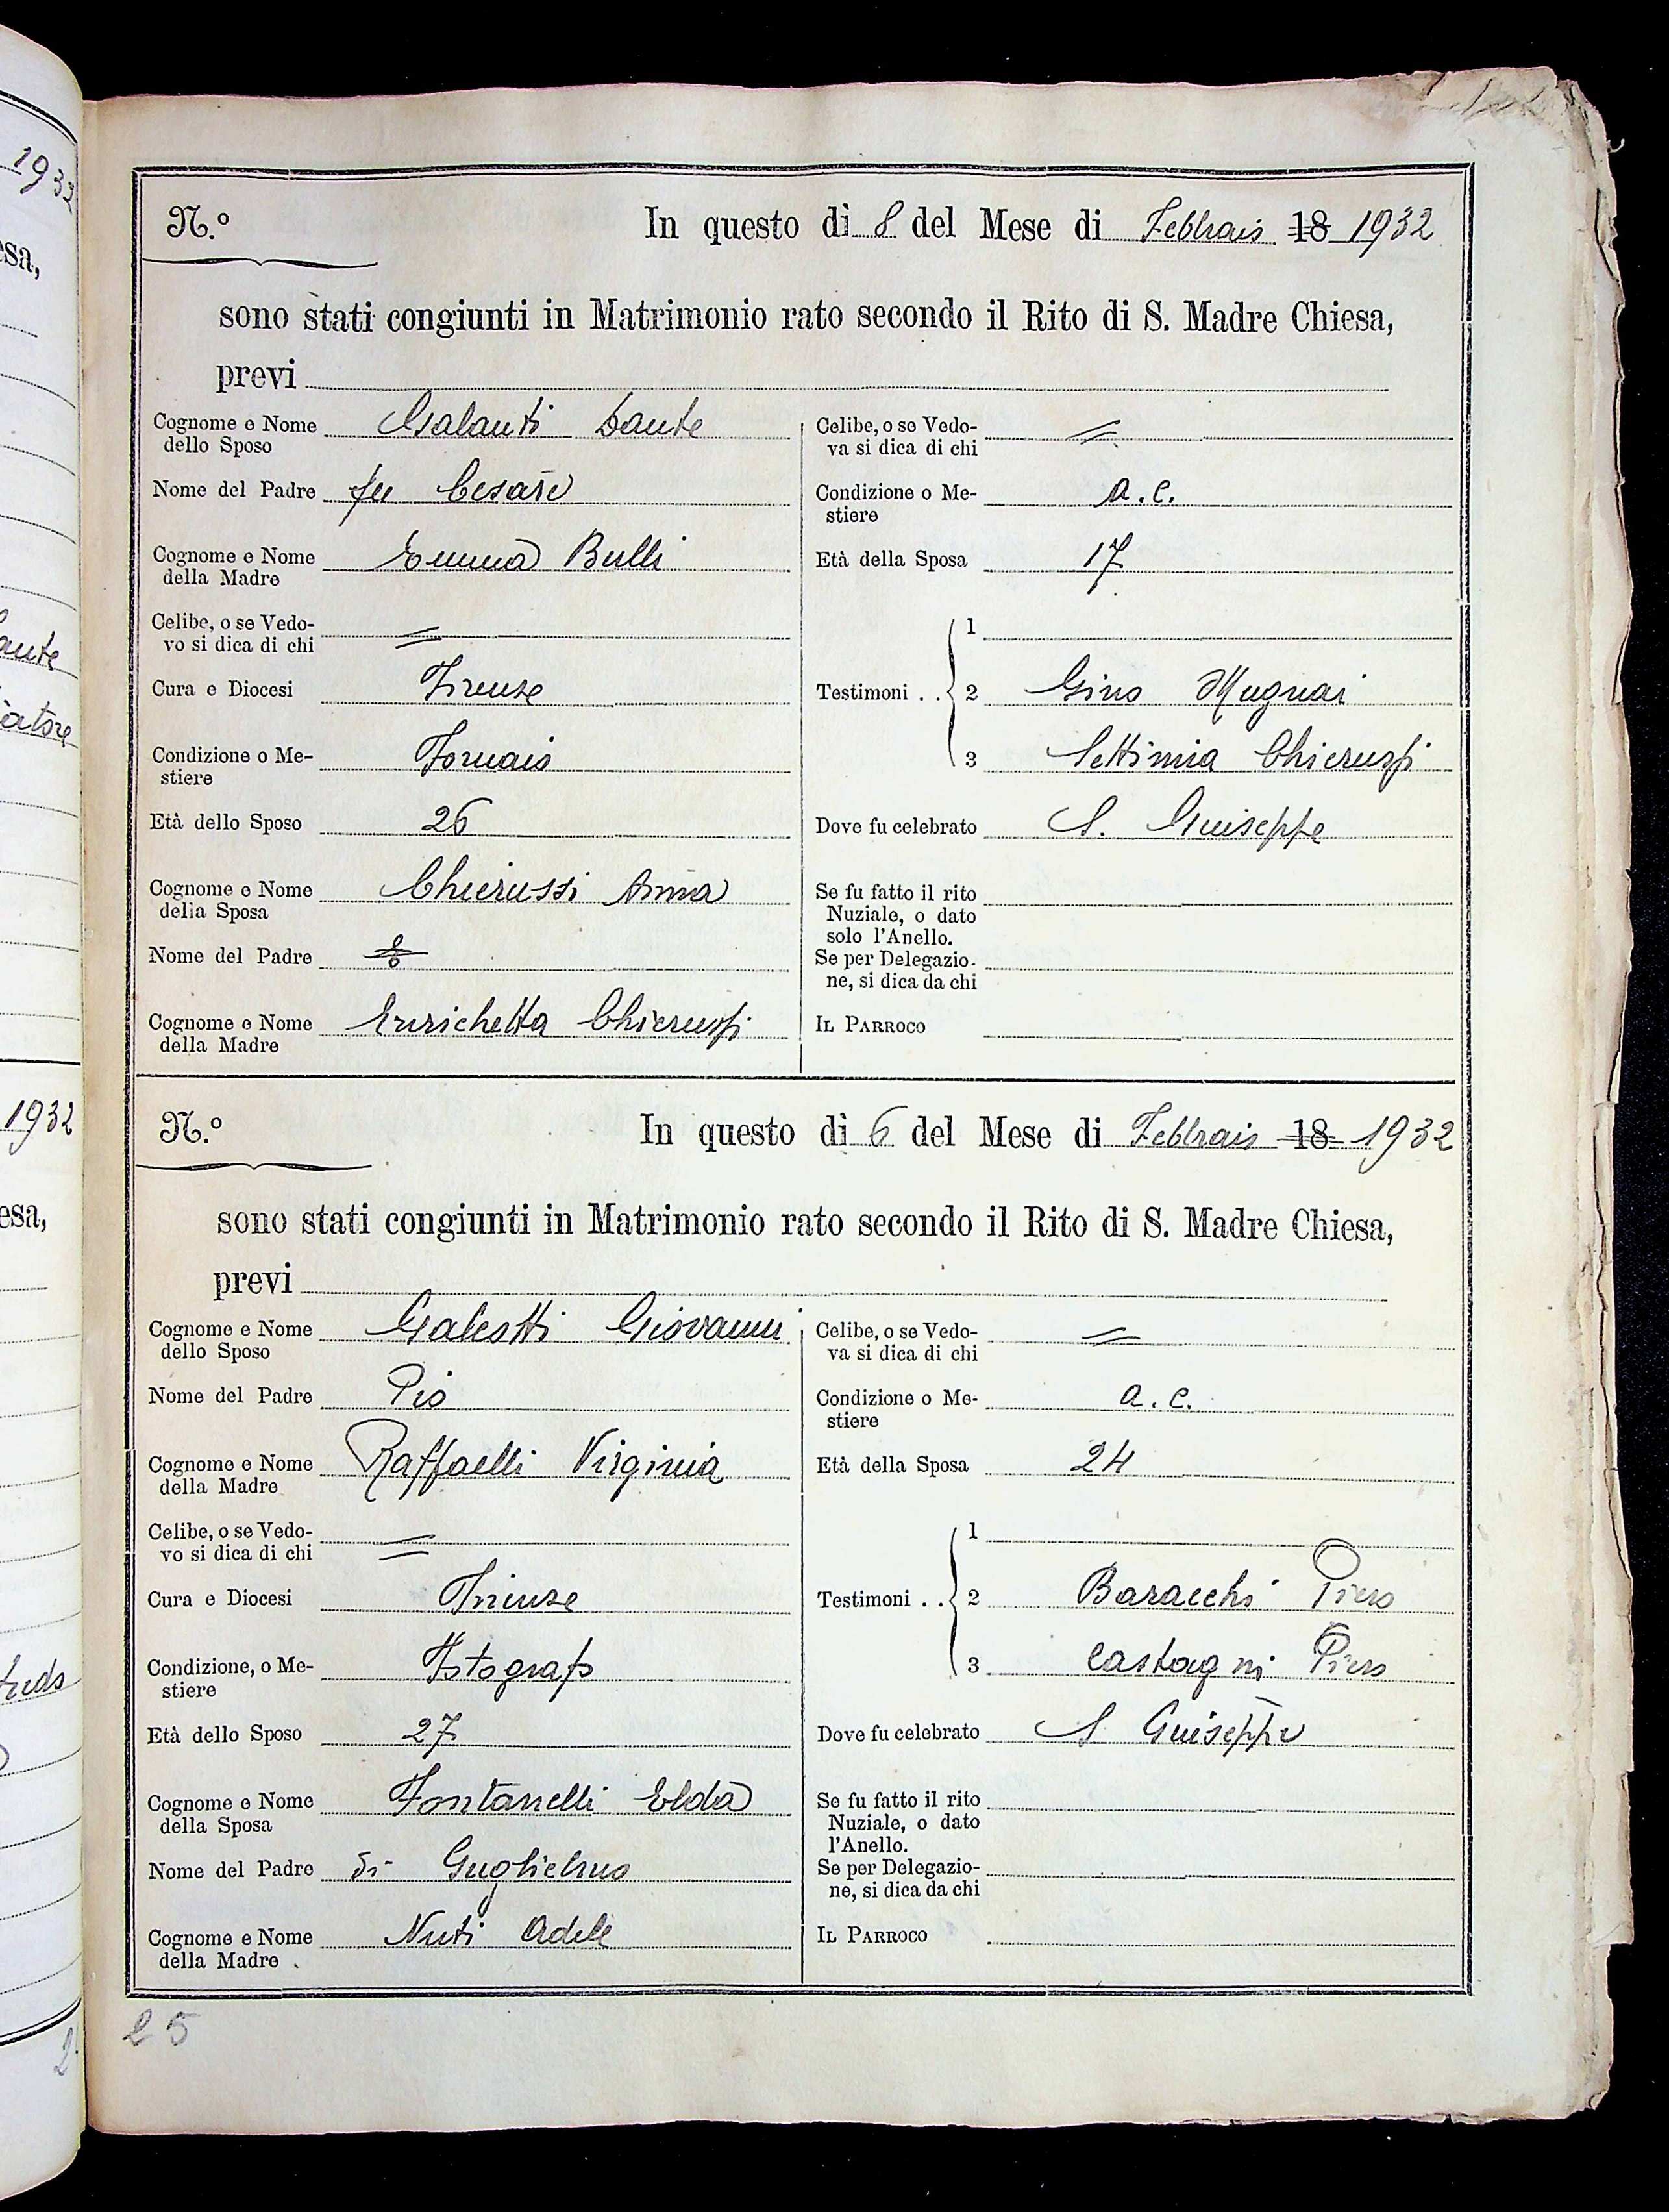 1932
esa,
ante
iatore
1932
esa,
N.º In questo dì 8 del Mese di Febbraio 18 1932
sono stati congiunti in Matrimonio rato secondo il Rito di S. Madre Chiesa,
previ
Cognome e Nome dello Sposo Galanti Dante
Nome del Padre fu Cesare
Cognome e Nome della Madre Emma Bulli
Celibe, o se Vedo-
vo si dica di chi =
Cura e Diocesi Firenze
Condizione o Me-
stiere Fornaio
Età dello Sposo 26
Cognome e Nome della Sposa Chierussi Anna
Nome del Padre
Cognome e Nome della Madre Enrichetta Chierussi
Celibe, o se Vedo-
va si dica di chi =
Condizione o Me-
stiere a. c.
Età della Sposa 17
Testimoni . . 1
2 Gino Mugnai
3 Settimia Chierussi
Dove fu celebrato S. Giuseppe
Se fu fatto il rito
Nuziale, o dato
solo l'Anello.
Se per Delegazio-
ne, si dica da chi
IL PARROCO
N.º In questo dì 6 del Mese di Febbraio 18 1932
sono stati congiunti in Matrimonio rato secondo il Rito di S. Madre Chiesa,
previ
Cognome e Nome dello Sposo Galeotti Giovanni
Nome del Padre Pio
Cognome e Nome della Madre Raffaelli Virginia
Celibe, o se Vedo-
vo si dica di chi =
Cura e Diocesi Firenze
Condizione, o Me-
stiere Fotografo
Età dello Sposo 27
Cognome e Nome della Sposa Fontanelli Elda
Nome del Padre di Guglielmo
Cognome e Nome della Madre Nuti Adele
Celibe, o se Vedo-
va si dica di chi =
Condizione o Me-
stiere a. c.
Età della Sposa 24
Testimoni . . 1
2 Baracchi Piero
3 Castagni Piero
Dove fu celebrato S Giuseppe
Se fu fatto il rito
Nuziale, o dato
l'Anello.
Se per Delegazio-
ne, si dica da chi
IL PARROCO
25